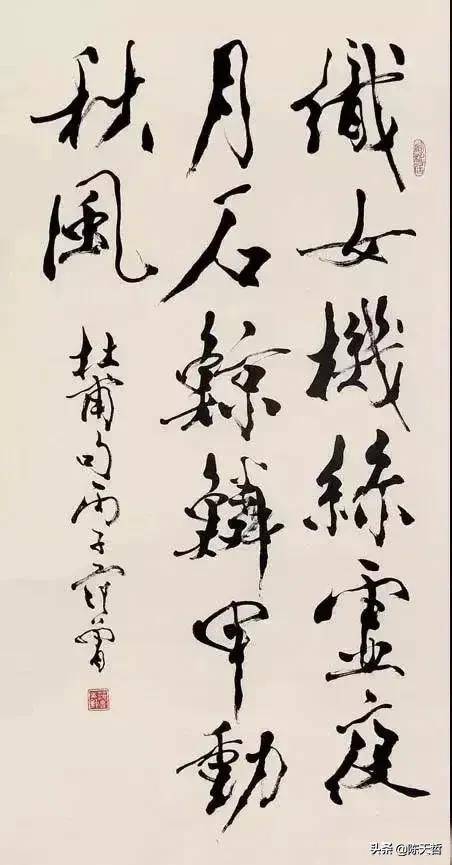 織女機絲虛夜
月石鯨鱗甲動
秋風
杜甫句丙子范曾
头条 @陈天哲